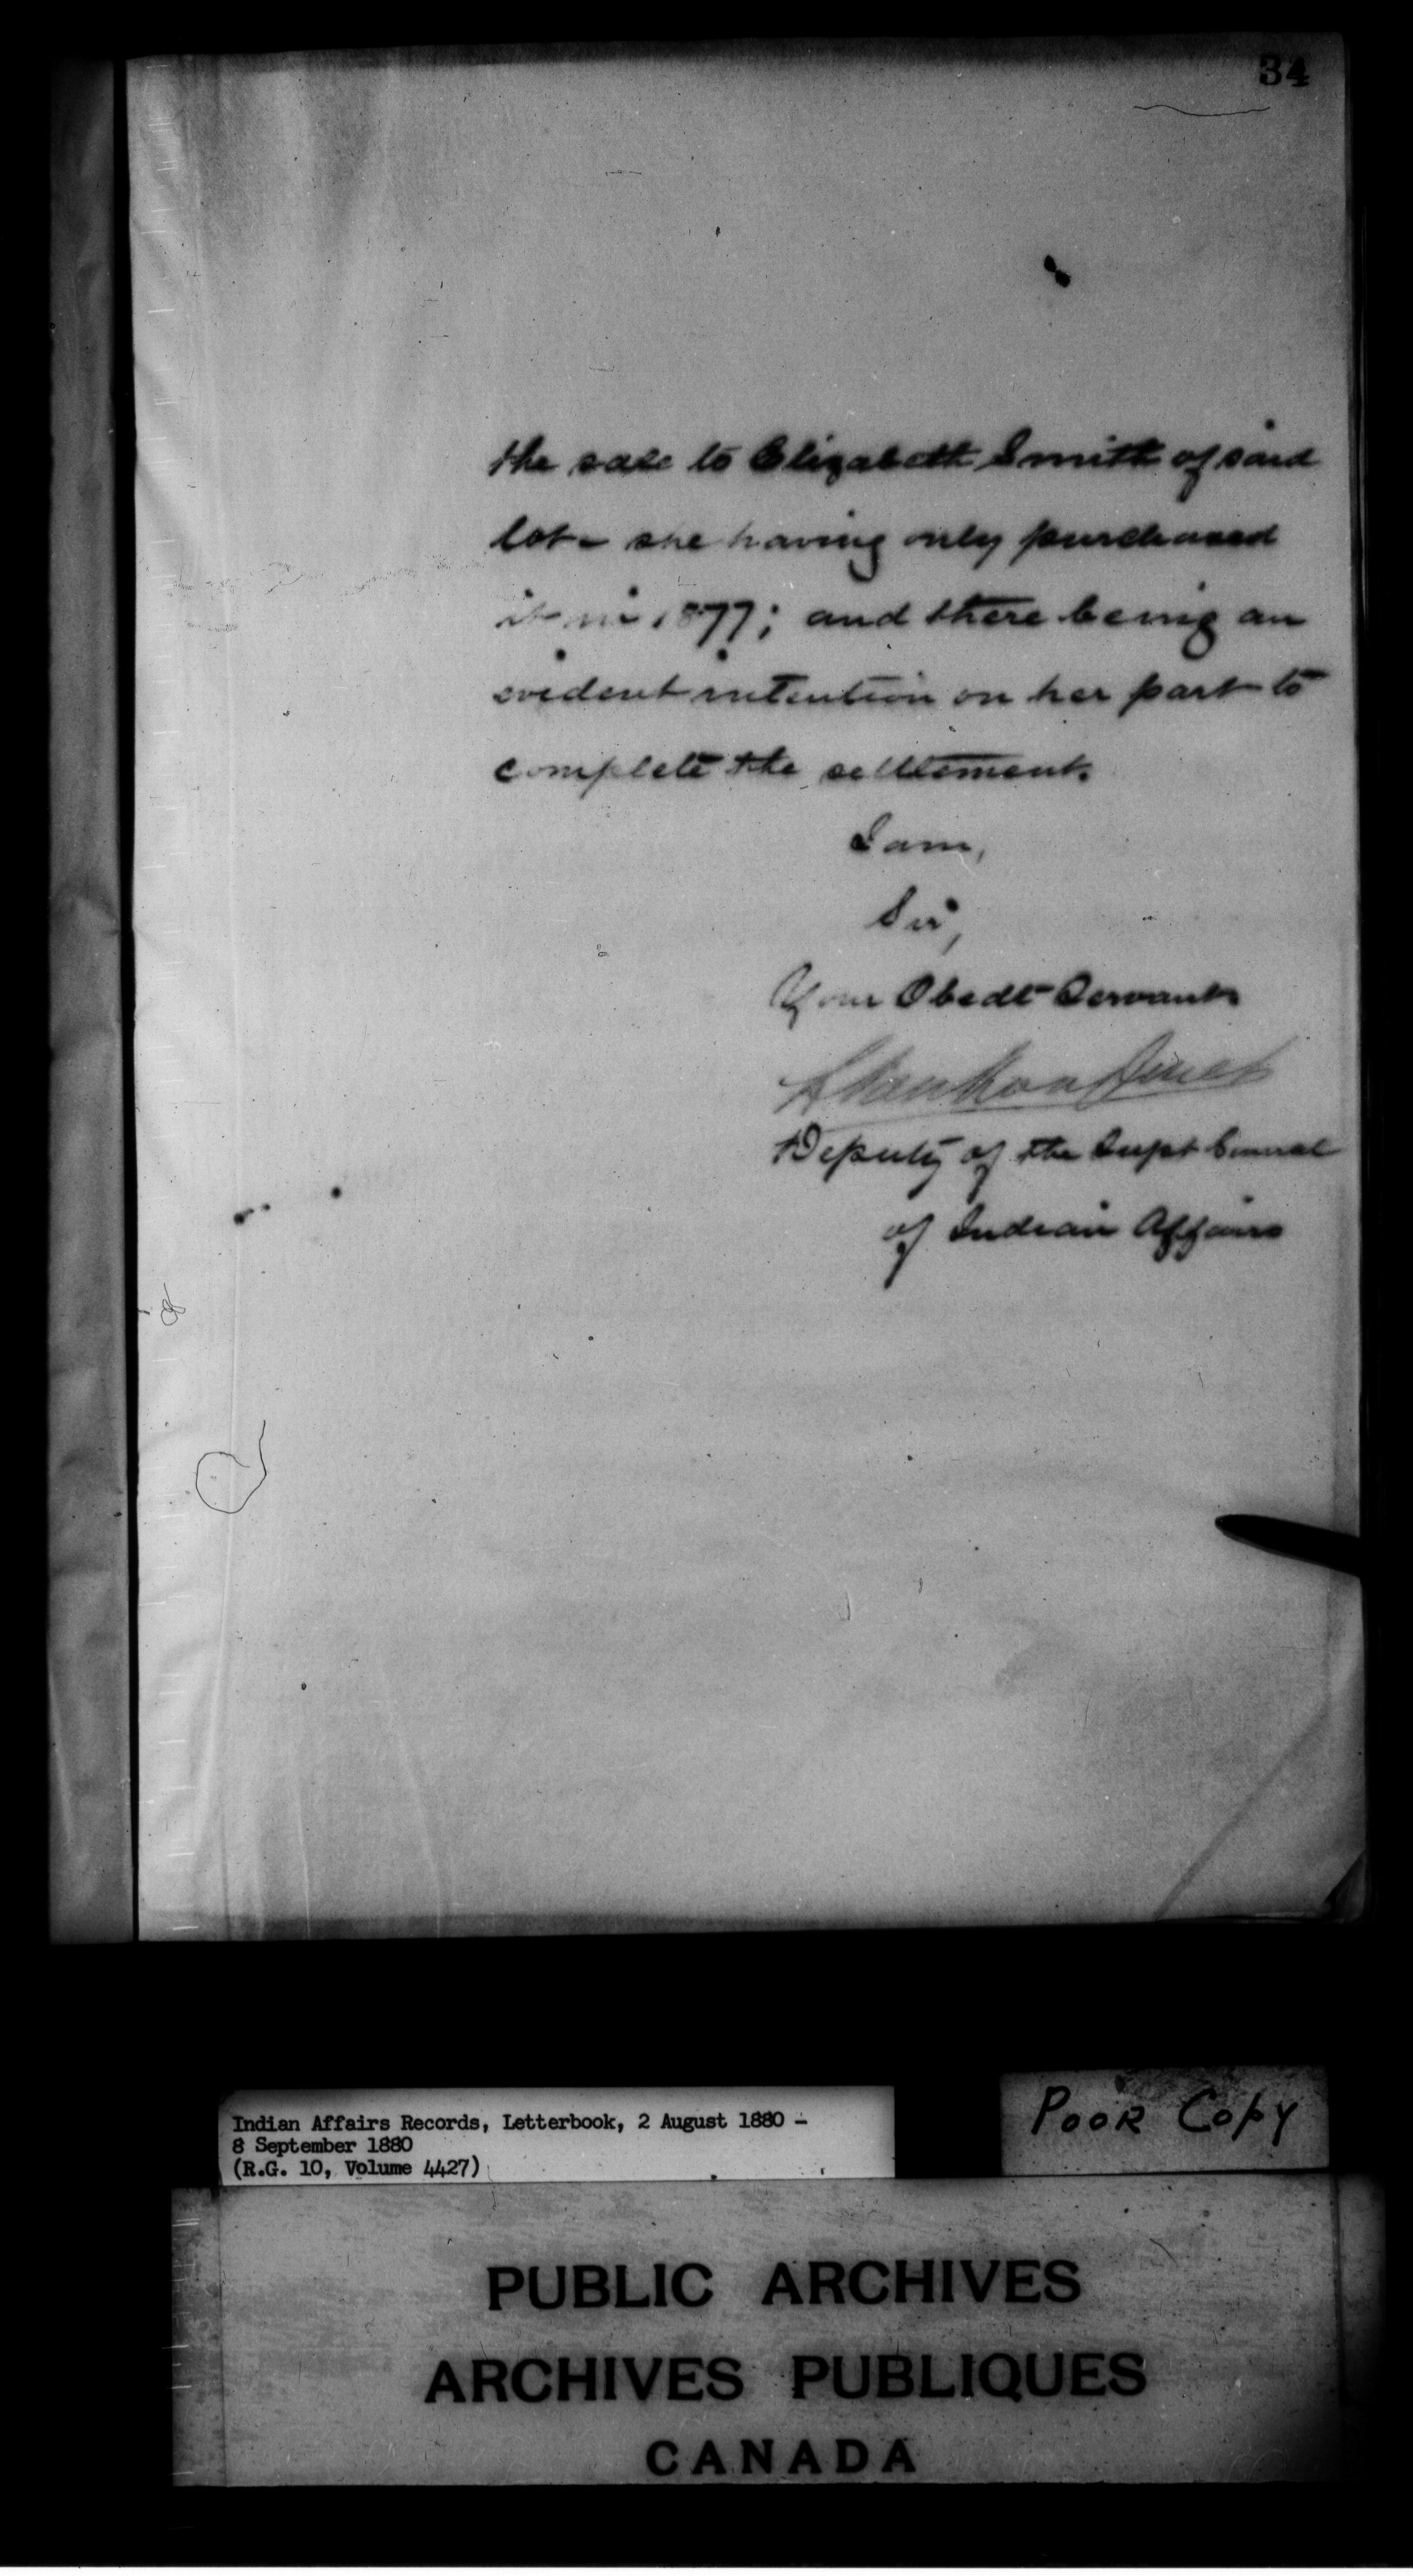 34
the sale to Elizabeth Smith of said
lot - she having only purchased
it in 1877; and there being an
evident intention on her part to
complete the settlement.
I am,
Sir,
Your Obedt Servant
L Vankoughnet
Deputy of the Supt General
of Indian Affairs
Indian Affairs Records, Letterbook, 2 August 1880 -
8 September 1880
(R.G. 10, Volume 4427)
POOR COPY
PUBLIC ARCHIVES
ARCHIVES PUBLIQUES
CANADA